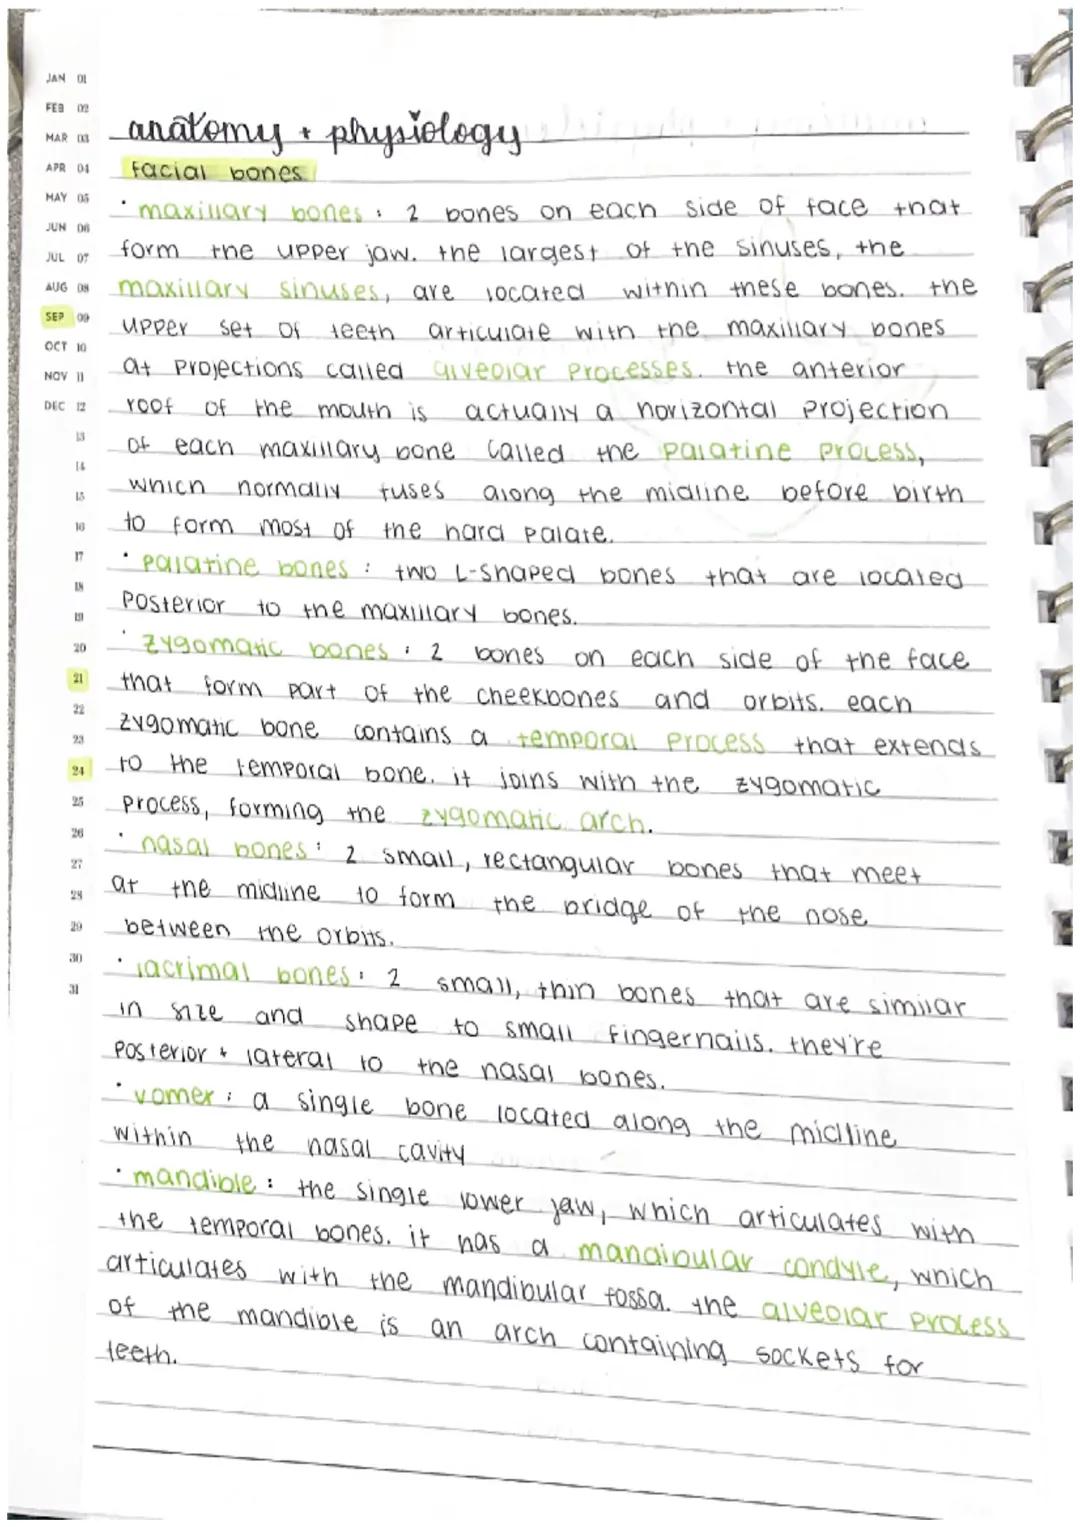 JAN 01
FEB 02
MAR 03
APR 04
MAY 05
JUN 06
JUL 07
AUG 08
SEP 09
OCT 10
NOV 11
DEC 12
13
14
15
16
17
18
19
20
21
22
23
24
25
26
27
28
29
30
31
anatomy + physiology
facial bones
· maxillary bones : 2 bones on each side of face that
form the upper jaw. the largest of the sinuses, the
maxillary sinuses, are located within these bones. the
upper set of teeth articulate with the maxillary bones
at projections called alveolar processes. the anterior
roof of the mouth is actually a horizontal projection
of each maxillary bone called the palatine process,
which normally fuses along the midline before birth
to form most of the hard palate.
· palatine bones : two L-shaped bones that are located
posterior to the maxillary bones.
· zygomatic bones : 2 bones on each side of the face
that form part of the cheekbones and orbits. each
zygomatic bone contains a temporal process that extends
to the temporal bone. it joins with the zygomatic
process, forming the zygomatic arch.
· nasal bones : 2 small, rectangular bones that meet
at the midline to form the bridge of the nose
between the orbits.
· lacrimal bones : 2 small, thin bones that are similar
in size and shape to small fingernails. they're
posterior + lateral to the nasal bones.
· vomer : a single bone located along the midline
within the nasal cavity
· mandible : the single lower jaw, which articulates with
the temporal bones. it has a mandibular condyle, which
articulates with the mandibular fossa. the alveolar process
of the mandible is an arch containing sockets for
teeth.